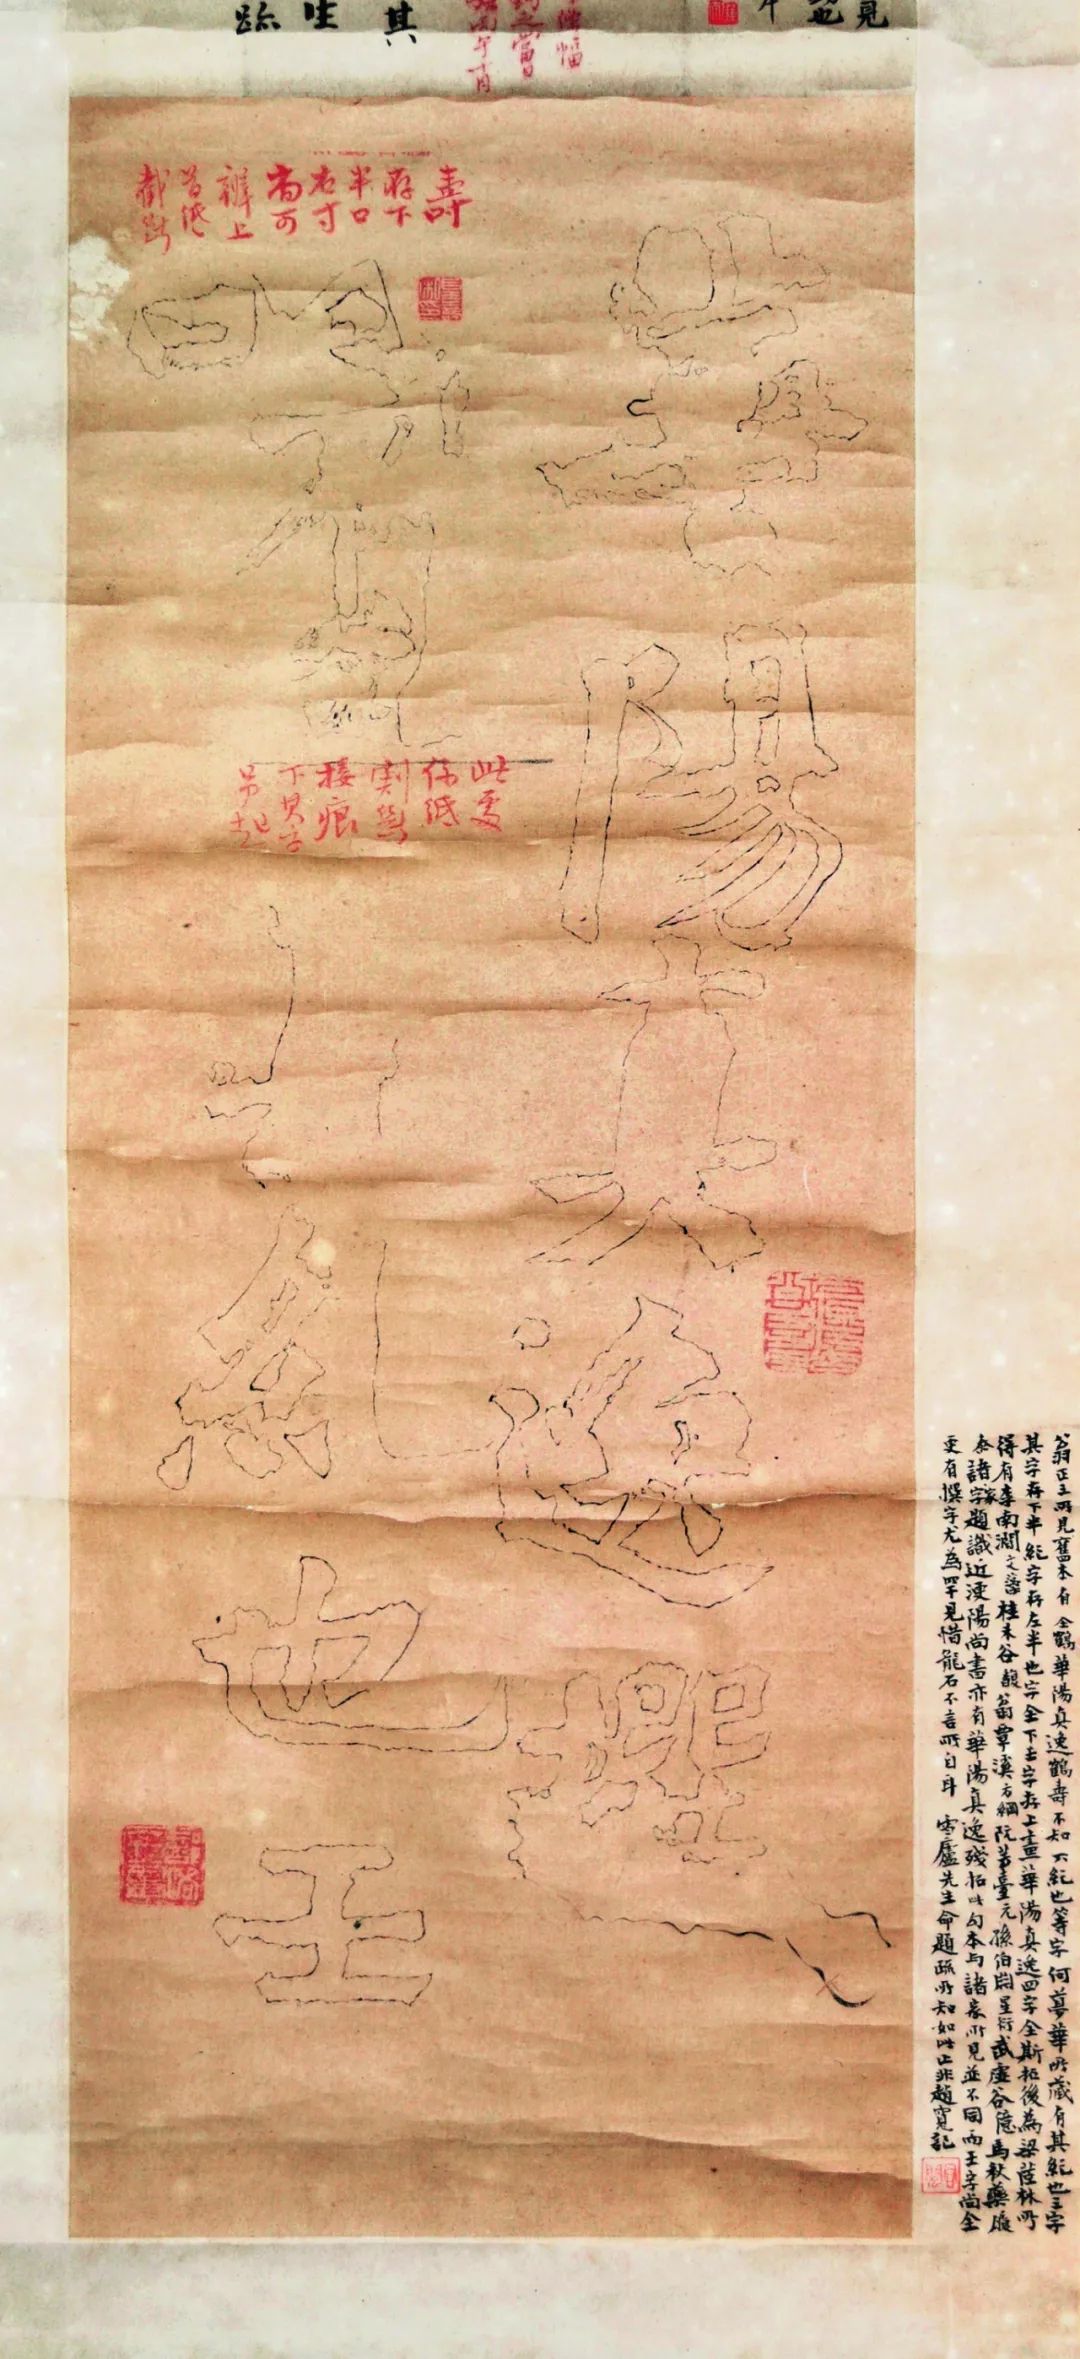 見
其
生
疏
幅
當日
壽
存下
半口
右寸
尚可
辨上
首紙
截斷
華
陽
真
逸
撰
鶴
壽
其
紀
也
壬
此處
係紙
割無
接痕
下其字
另起
翁正三所見舊本有全鶴華陽真逸鶴壽不知不紀也等字何夢華所藏有其紀也壬字
其字存下半紀字存左半也字全下壬字存上畫華陽真逸四字全斯拓後為梁茝林所
得有李南澗文藻桂未谷馥翁覃溪方綱阮芸臺元孫伯淵星衍武虛谷億馬秋藥履
泰諸家題識近溧陽尚書亦有華陽真逸殘拓此勾本與諸家所見並不同而壬字尚全
更有撰字尤為罕見惜龍石不言所自耳 雪廬先生命題疏所知如此止非趙寬記